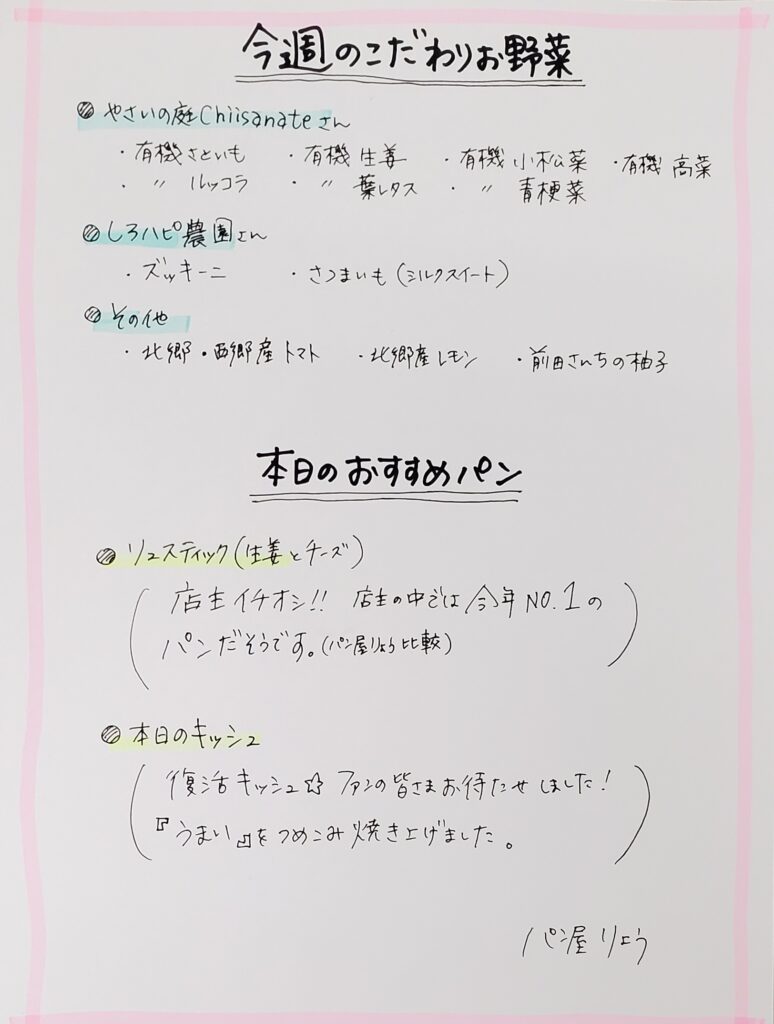 今週のこだわりお野菜
やさいの庭Chiisanateさん
・有機さといも ・有機生姜 ・有機小松菜 ・有機高菜
・〃ルッコラ ・〃葉レタス ・〃青梗菜
しろハピ農園さん
・ズッキーニ ・さつまいも(シルクスイート)
その他
・北郷・西郷産トマト ・北郷産レモン ・前田さんちの柚子
本日のおすすめパン
リュスティック(生姜とチーズ)
(店主イチオシ!! 店主の中では今年NO.1の
パンだそうです。(パン屋りょう比較))
本日のキッシュ
(復活キッシュ☆ ファンの皆さまお待たせしました!
『うまい』をつめこみ焼き上げました。)
パン屋りょう